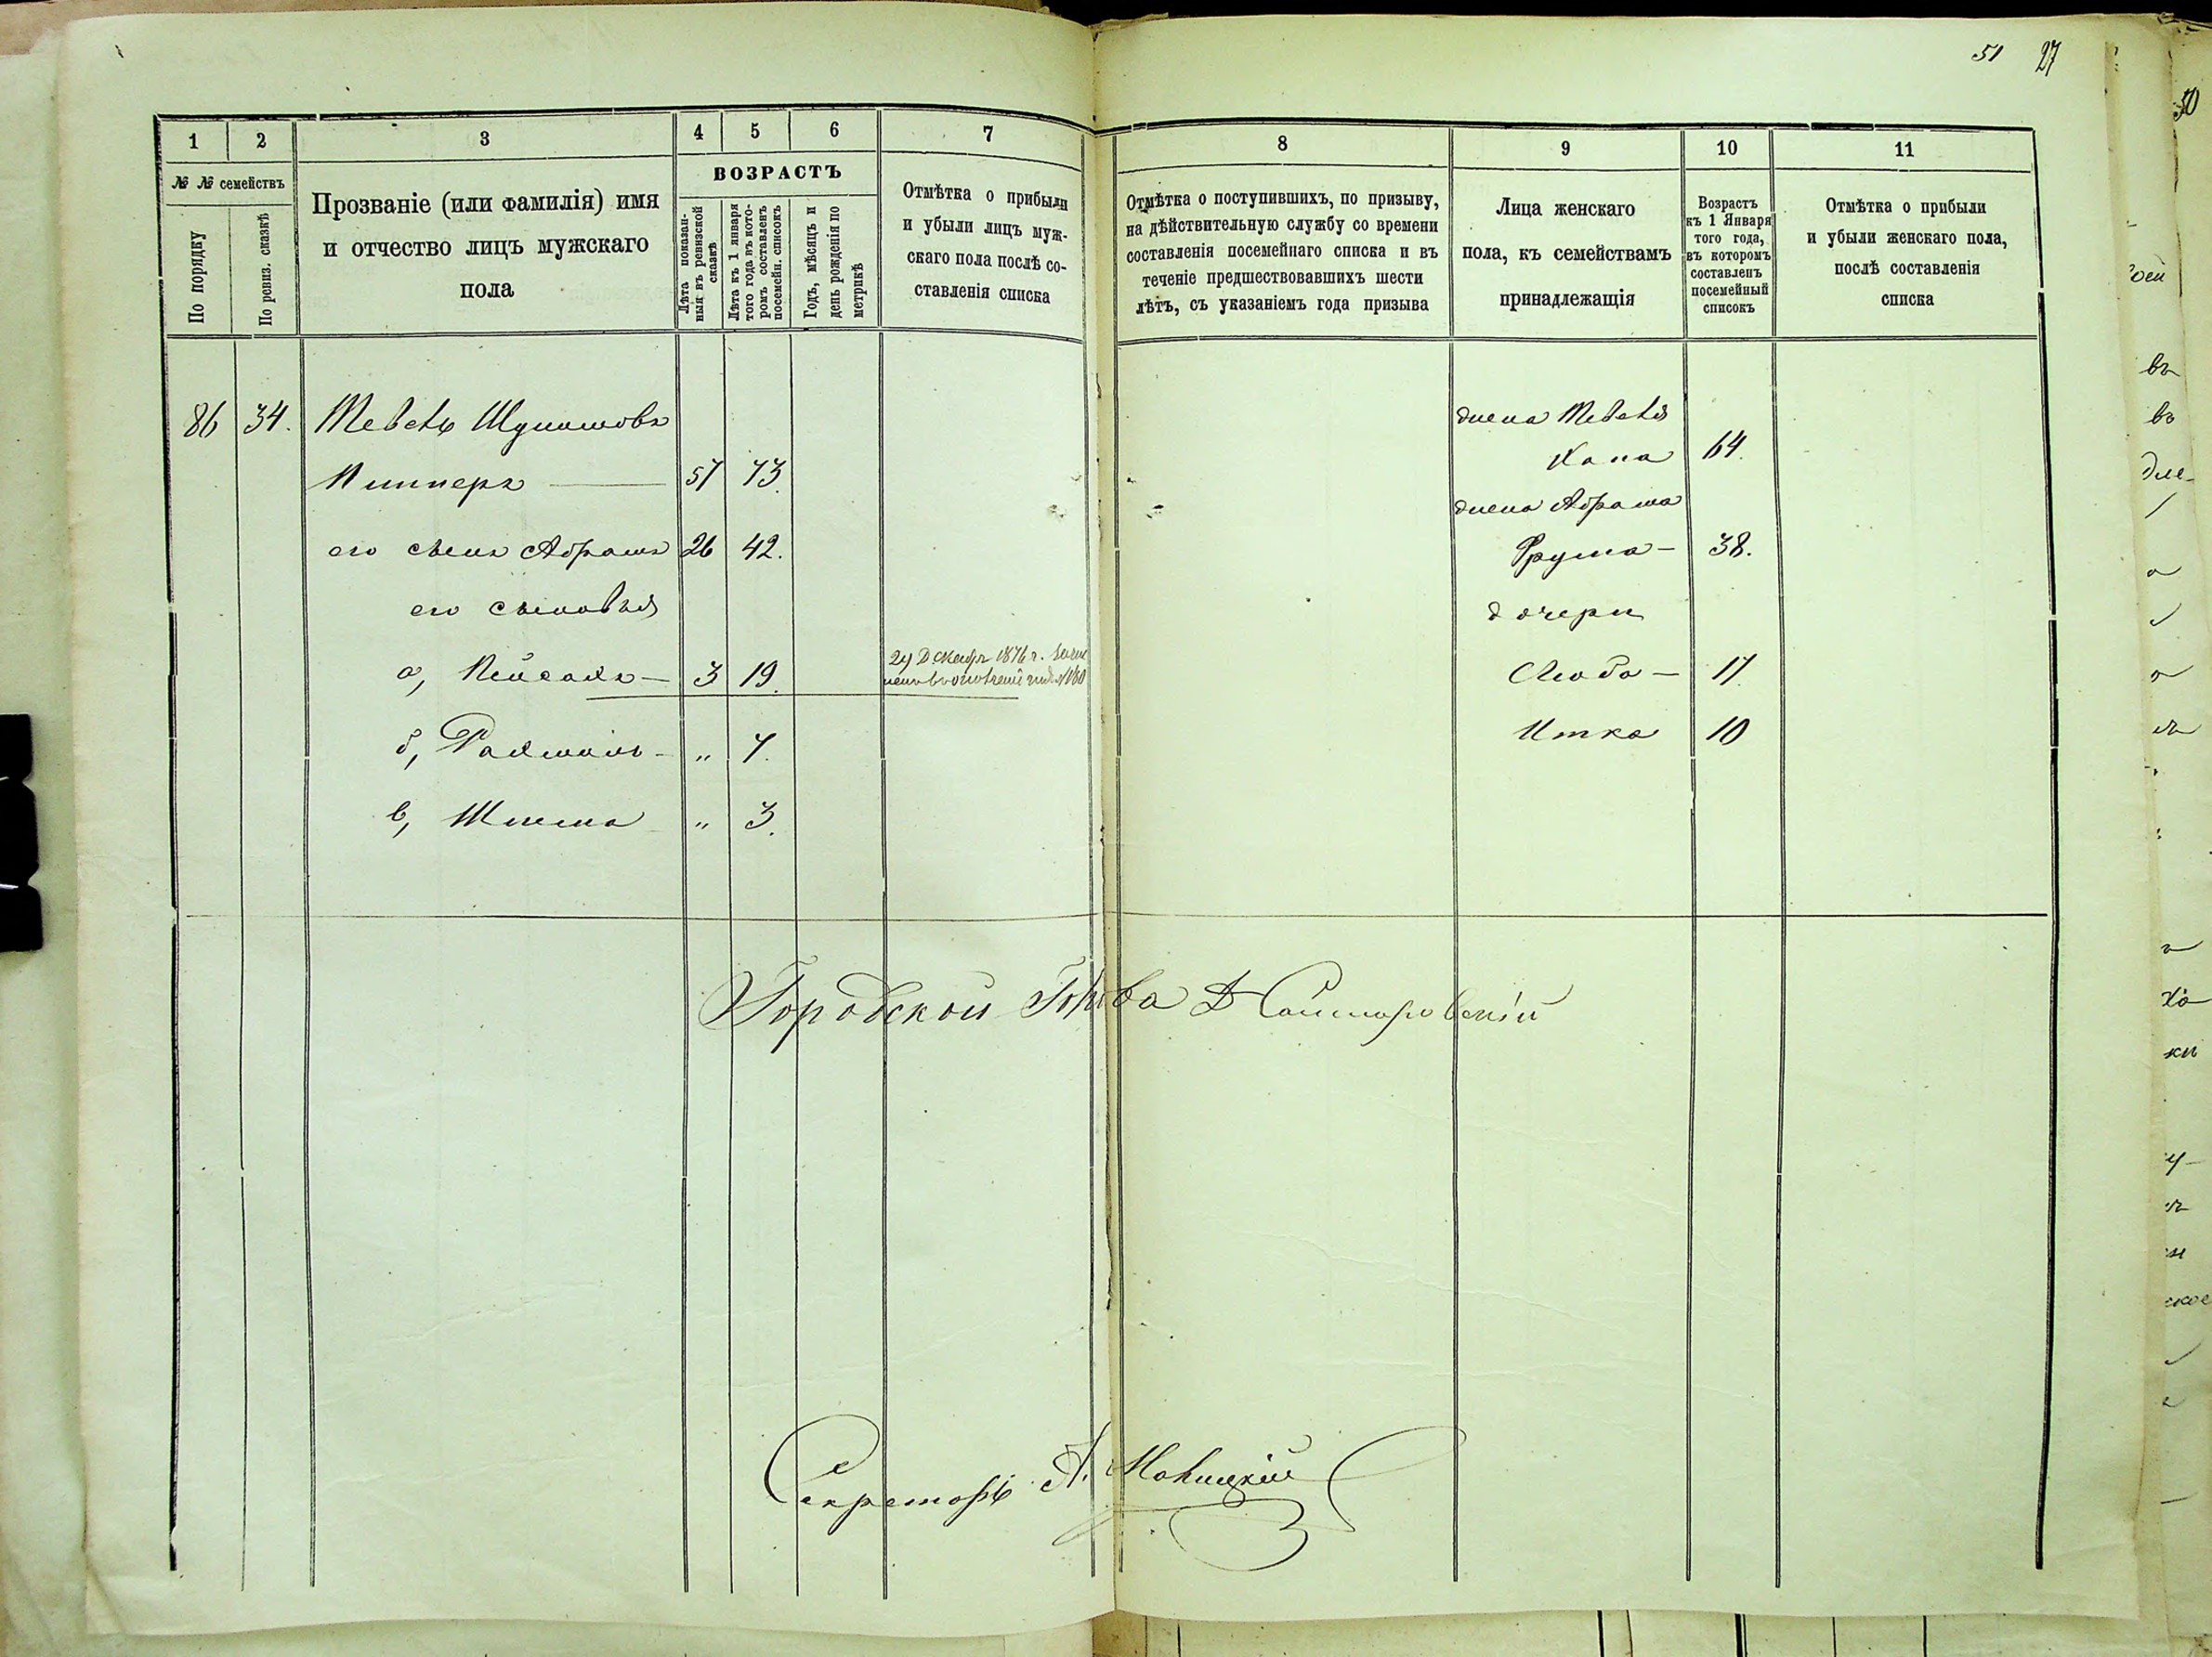 51 27
1 2 3 4 5 6 7 8 9 10 11
№ № семействъ
По порядку
По ревиз. сказкѣ
Прозваніе (или фамилія) имя
и отчество лицъ мужскаго
пола
ВОЗРАСТЪ
Лѣта показан-
ныя въ ревизской
сказкѣ
Лѣта къ 1 января
того года въ кото-
ромъ составленъ
посемейн. списокъ
Годъ, мѣсяцъ и
день рожденія по
метрикѣ
Отмѣтка о прибыли
и убыли лицъ муж-
скаго пола послѣ со-
ставленія списка
Отмѣтка о поступившихъ, по призыву,
на дѣйствительную службу со времени
составленія посемейнаго списка и въ
теченіе предшествовавшихъ шести
лѣтъ, съ указаніемъ года призыва
Лица женскаго
пола, къ семействамъ
принадлежащія
Возрастъ
къ 1 Января
того года,
въ которомъ
составленъ
посемейный
списокъ
Отмѣтка о прибыли
и убыли женскаго пола,
послѣ составленія
списка
86 34. жена
Хана 64.
57 73.
жена Абрама
его сынъ Абрамъ 26 42. Фрума - 38.
его сыновья дочери
а, Пейсахъ - 3 19. Декабр 1876 г. Люба - 17
б, Рахмиль - " 7. Итка 10
в, " 3.
Городской Голова
Секретарь А.